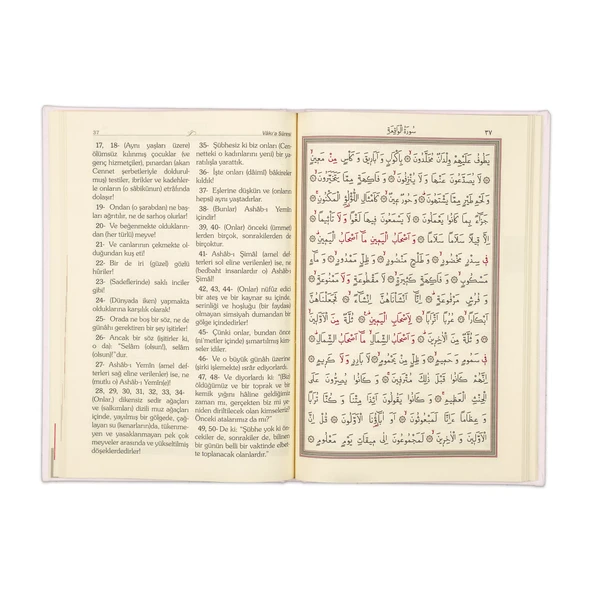 37
Vâkı'a Sûresi
17, 18- (Aynı yaşları üzere)
ölümsüz kılınmış çocuklar (ve
genç hizmetçiler), pınardan (akan
Cennet şerbetleriyle doldurul-
muş) testiler, ibrikler ve kadehler-
le onların (o sâbikûnun) etrâfında
dolaşır!
19- Ondan (o şarabdan) ne baş-
ları ağrıtılır, ne de sarhoş olurlar!
20- Ve beğenmekte oldukların-
dan (her türlü) meyve!
21- Ve canlarının çekmekte ol-
duğundan kuş eti!
22- Bir de iri (güzel) gözlü
hûriler!
23- (Sadeflerinde) saklı inciler
gibi!
24- (Dünyada iken) yapmakta
olduklarına karşılık olarak!
25- Orada ne boş bir söz, ne de
günâhı gerektiren bir şey işitirler!
26- Ancak bir söz (işitirler ki,
o da): "Selâm (olsun!), selâm
(olsun!)"dur.
27- Ashâb-ı Yemîn (amel def-
terleri sağ eline verilenler) ise, ne
(mutlu o) Ashâb-ı Yemîn(e)!
28, 29, 30, 31, 32, 33, 34-
(Onlar,) dikensiz sedir ağaçları
ve (salkımları) dizili muz ağaçları
içinde, yayılmış bir gölgede, çağ-
layan su (kenarların)da, tükenme-
yen ve yasaklanmayan pek çok
meyveler arasında ve yükseltilmiş
döşeklerdedirler!
35- Şübhesiz ki biz onları (Cen-
netteki o kadınları) yeni bir ya-
ratılışla yarattık.
36- İşte onları (dâimî) bâkireler
kıldık!
37- Eşlerine düşkün ve (onların
hepsi) aynı yaştadırlar.
38- (Bunlar) Ashâb-ı Yemîn
içindir!
39, 40- (Onlar) önceki (ümmet)
lerden birçok, sonrakilerden de
birçoktur.
41- Ashâb-ı Şimâl (amel def-
terleri sol eline verilenler) ise, ne
(bedbaht insanlardır o) Ashâb-ı
Şimâl!
42, 43, 44- (Onlar) nüfûz edici
bir ateş ve bir kaynar su içinde,
serinliği ve hoşluğu (bir faydası)
olmayan simsiyah dumandan bir
gölge içindedirler!
45- Çünki onlar, bundan önce
(ni'metler içinde) şımartılmış kim-
seler idiler.
46- Ve o büyük günâh üzerinde
(şirki işlemekte) ısrâr ediyorlardı.
47, 48- Ve diyorlardı ki: "(Biz)
öldüğümüz ve bir toprak ve bir
kemik yığını hâline geldiğimiz
zaman mı, gerçekten biz mi ye-
niden diriltilecek olan kimseleriz?
Önceki atalarımız da mı?"
49, 50- De ki: "Şübhe yok ki ön-
cekiler de, sonrakiler de, bilinen
bir günün belli bir vaktinde elbet-
te toplanacak olanlardır."
سُورَةُ الْوَاقِعَةِ
٣٧
يَطُوفُ عَلَيْهِمْ وِلْدَانٌ مُخَلَّدُونَ ۞ بِاَكْوَابٍ وَ اَبَارِيقَ وَ كَأْسٍ مِنْ مَعِينٍ ۞
لَا يُصَدَّعُونَ عَنْهَا وَلَا يُنْزِفُونَ ۞ وَ فَاكِهَةٍ مِمَّا يَتَخَيَّرُونَ ۞
وَلَحْمِ طَيْرٍ مِمَّا يَشْتَهُونَ ۞ وَ حُورٌ عِينٌ ۞ كَاَمْثَالِ اللُّؤْلُؤِ الْمَكْنُونِ ۞
جَزَٓاءً بِمَا كَانُوا يَعْمَلُونَ ۞ لَا يَسْمَعُونَ فِيهَا لَغْوًا وَلَا تَأْثِيمًا ۞
اِلَّا قِيلًا سَلَامًا سَلَامًا ۞ وَ اَصْحَابُ الْيَمِينِ مَٓا اَصْحَابُ الْيَمِينِ ۞
فِي سِدْرٍ مَخْضُودٍ ۞ وَ طَلْحٍ مَنْضُودٍ ۞ وَ ظِلٍّ مَمْدُودٍ ۞ وَ مَٓاءٍ
مَسْكُوبٍ ۞ وَ فَاكِهَةٍ كَثِيرَةٍ ۞ لَا مَقْطُوعَةٍ وَلَا مَمْنُوعَةٍ ۞
وَ فُرُشٍ مَرْفُوعَةٍ ۞ اِنَّٓا اَنْشَأْنَاهُنَّ اِنْشَٓاءً ۞ فَجَعَلْنَاهُنَّ
اَبْكَارًا ۞ عُرُبًا اَتْرَابًا ۞ لِاَصْحَابِ الْيَمِينِ ۞ ثُلَّةٌ مِنَ الْاَوَّلِينَ ۞
وَ ثُلَّةٌ مِنَ الْاٰخِرِينَ ۞ وَ اَصْحَابُ الشِّمَالِ مَٓا اَصْحَابُ الشِّمَالِ ۞
فِي سَمُومٍ وَ حَمِيمٍ ۞ وَ ظِلٍّ مِنْ يَحْمُومٍ ۞ لَا بَارِدٍ وَ لَا كَرِيمٍ ۞
اِنَّهُمْ كَانُوا قَبْلَ ذٰلِكَ مُتْرَفِينَ ۞ وَ كَانُوا يُصِرُّونَ عَلَى
الْحِنْثِ الْعَظِيمِ ۞ وَ كَانُوا يَقُولُونَ اَئِذَا مِتْنَا وَ كُنَّا تُرَابًا
وَ عِظَامًا ءَاِنَّا لَمَبْعُوثُونَ ۞ اَوَ اٰبَٓاؤُنَا الْاَوَّلُونَ ۞ قُلْ اِنَّ
الْاَوَّلِينَ وَ الْاٰخِرِينَ ۞ لَمَجْمُوعُونَ اِلٰى مِيقَاتِ يَوْمٍ مَعْلُومٍ ۞